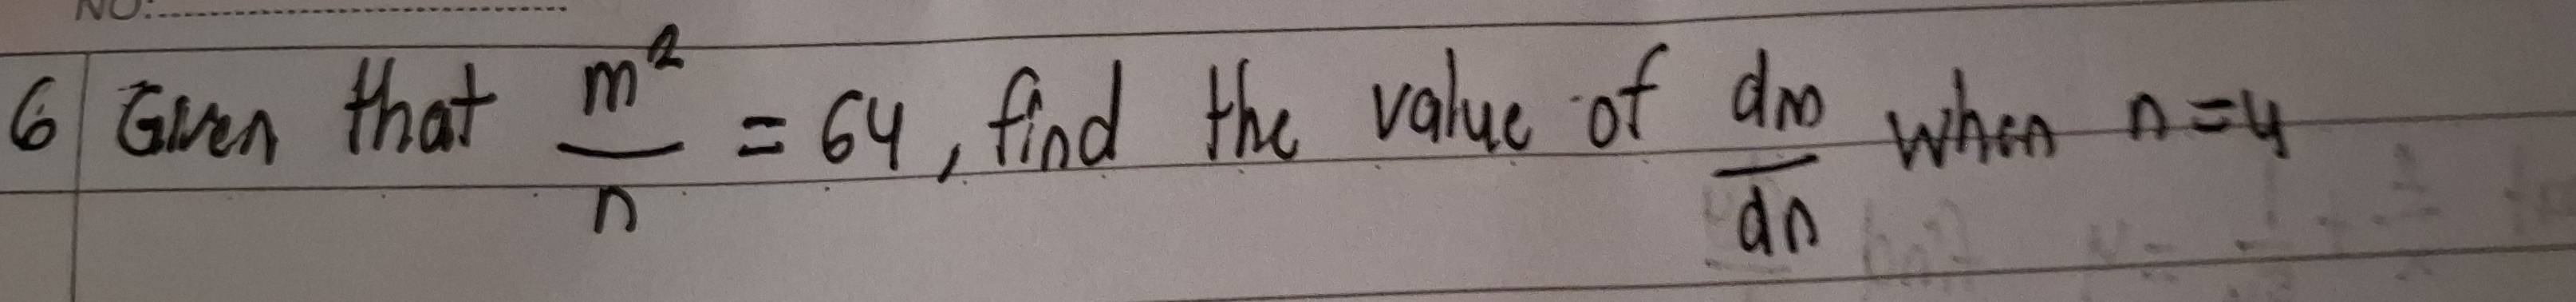 NO:
6 Given that m²/n = 64, find the value of dm/dn when n=4